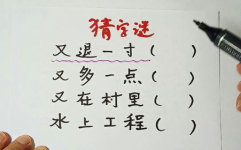 猜字谜
又退一寸( )
又多一点( )
又在村里( )
水上工程( )